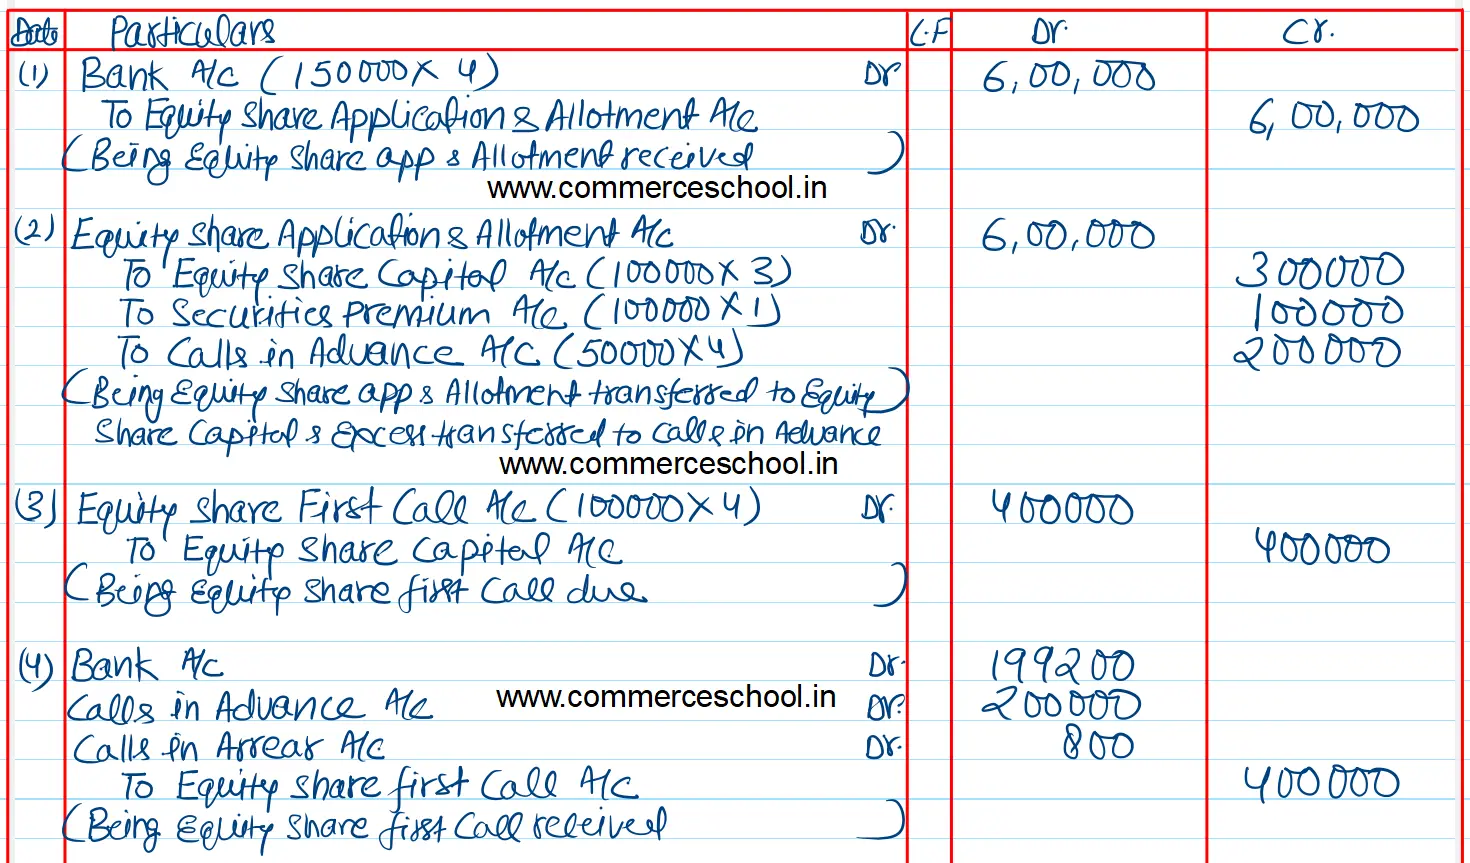 Date Particulars L.F Dr. Cr.
(1) Bank A/c (150000 X 4) Dr 6,00,000
To Equity Share Application & Allotment A/c 6,00,000
(Being Equity Share app & Allotment received)
www.commerceschool.in
(2) Equity Share Application & Allotment A/c Dr. 6,00,000
To Equity Share Capital A/c (100000 X 3) 300000
To Securities Premium A/c (100000 X 1) 100000
To Calls in Advance A/c (50000 X 4) 200000
(Being Equity Share app & Allotment transferred to Equity)
Share Capital & Excess transferred to calls in Advance
www.commerceschool.in
(3) Equity Share First Call A/c (100000 X 4) Dr. 400000
To Equity Share Capital A/c 400000
(Being Equity Share first Call due)
(4) Bank A/c Dr. 199200
Calls in Advance A/c www.commerceschool.in Dr. 200000
Calls in Arrear A/c Dr. 800
To Equity Share first Call A/c 400000
(Being Equity Share first Call received)